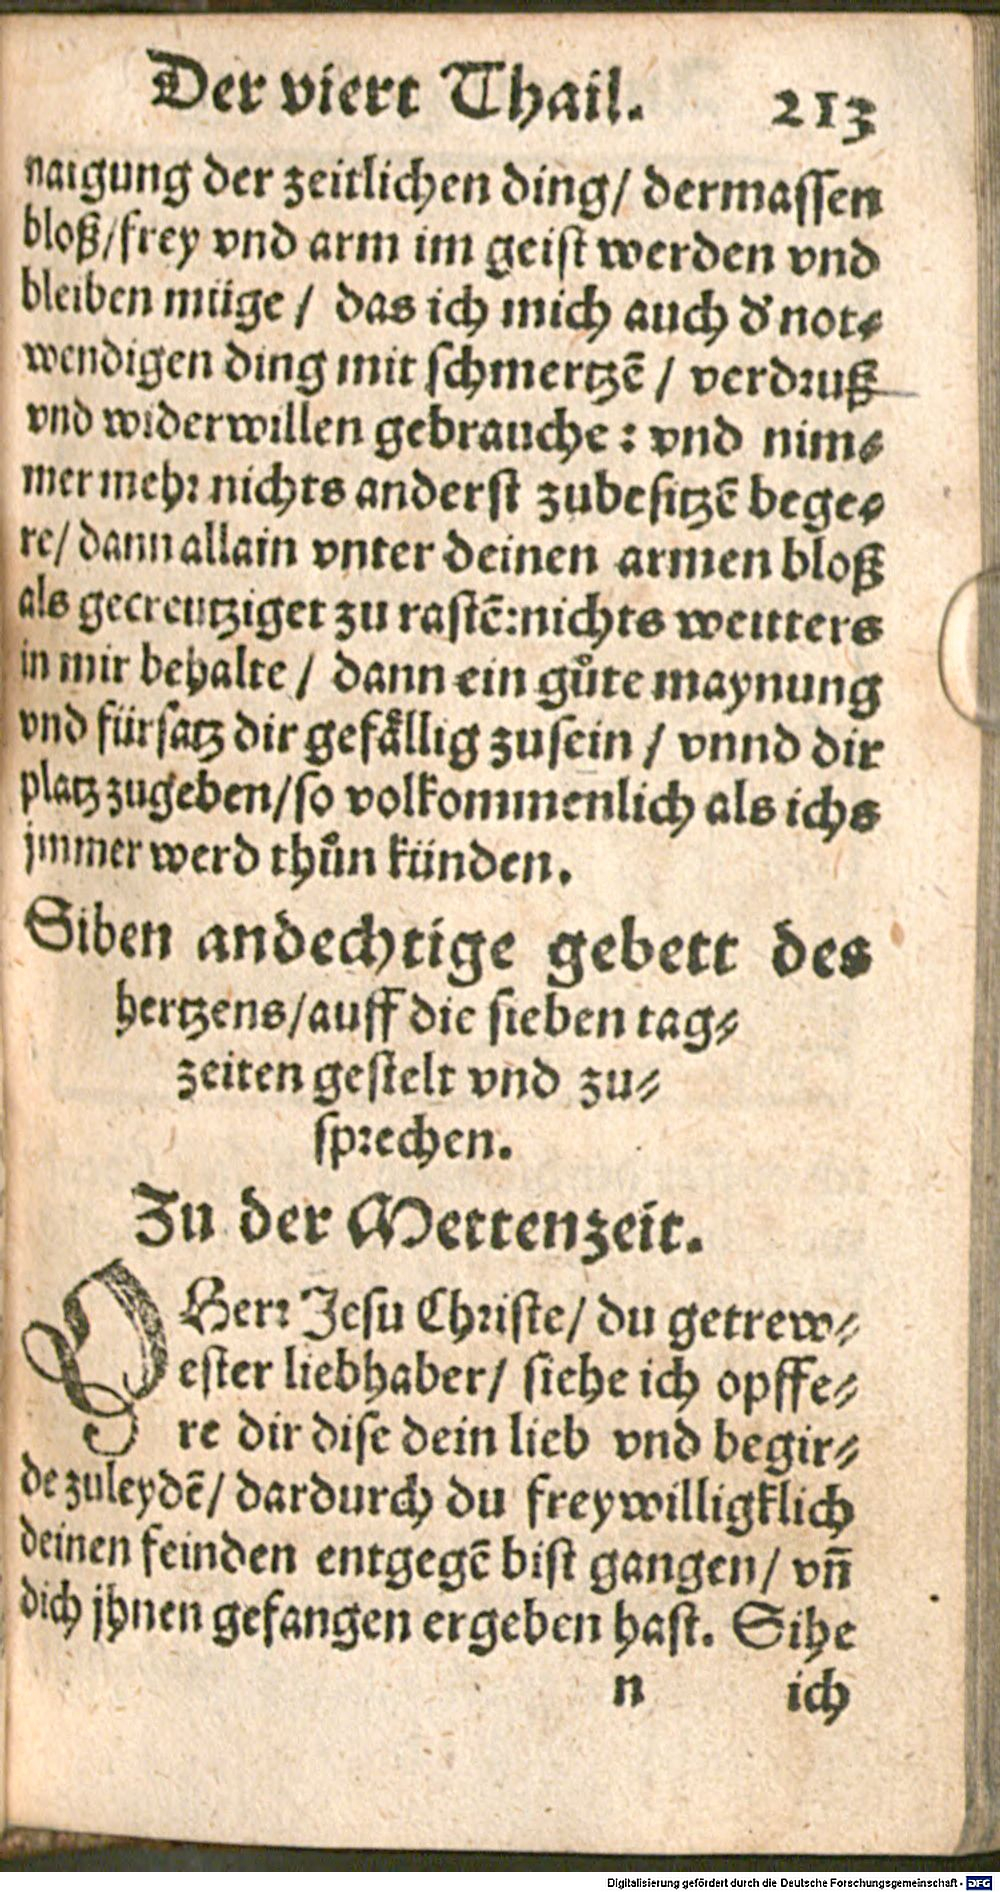 Der viert Thail. 213
naigung der zeitlichen ding/ dermassen
bloß/frey vnd arm im geist werden vnd
bleiben müge / das ich mich auch d' not⸗
wendigen ding mit schmertzē / verdruß
vnd widerwillen gebrauche : vnd nim⸗
mer mehr nichts anderst zubesitzē bege⸗
re/ dann allain vnter deinen armen bloß
als gecreutziget zu rastē:nichts weitters
in mir behalte / dann ein gůte maynung
vnd fürsatz dir gefällig zusein / vnnd dir
platz zugeben/so volkommenlich als ichs
jmmer werd thůn künden.
Siben andechtige gebett des
hertzens/auff die sieben tag⸗
zeiten gestelt vnd zu⸗
sprechen.
Zu der Mettenzeit.
O Herr Jesu Christe/ du getrew⸗
ester liebhaber/ siehe ich opffe⸗
re dir dise dein lieb vnd begir⸗
de zuleydē/ dardurch du freywilligklich
deinen feinden entgegē bist gangen/ vn̄
dich jhnen gefangen ergeben hast. Sihe
n ich
Digitalisierung gefördert durch die Deutsche Forschungsgemeinschaft - DFG